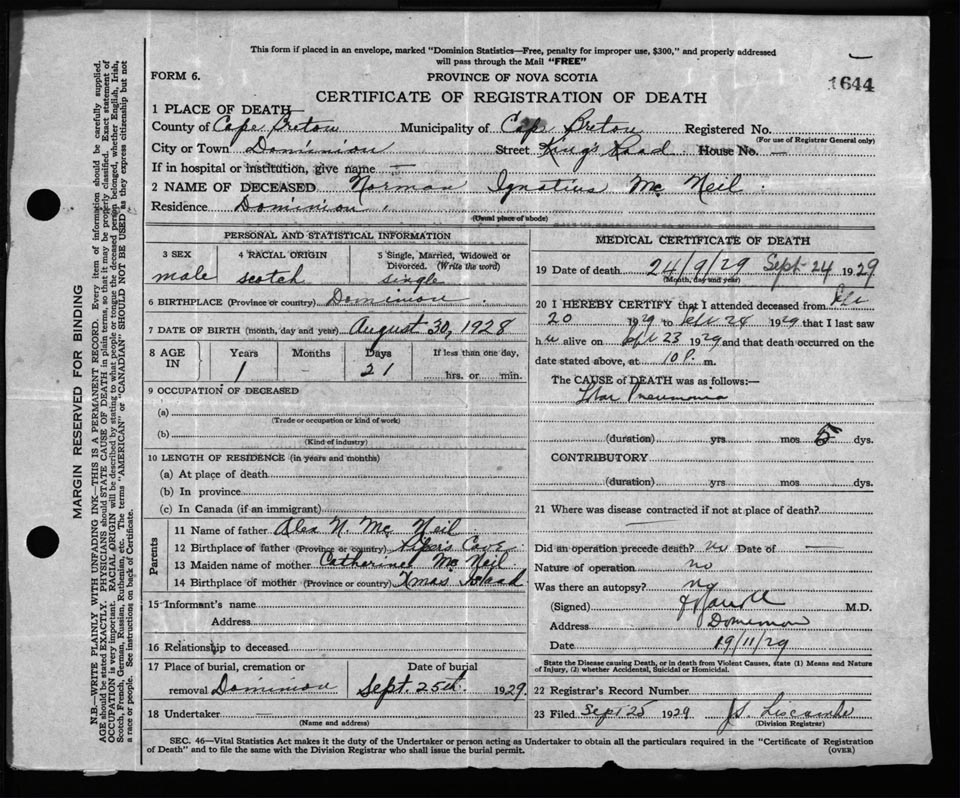 This form if placed in an envelope, marked "Dominion Statistics—Free, penalty for improper use, $300," and properly addressed
will pass through the Mail "FREE"
FORM 6.
PROVINCE OF NOVA SCOTIA
1644
CERTIFICATE OF REGISTRATION OF DEATH
1 PLACE OF DEATH—
County of Cape Breton Municipality of Cape Breton Registered No.
(For use of Registrar General only)
City or Town Dominion Street King's Road House No. —
If in hospital or institution, give name —
2 NAME OF DECEASED Norman Ignatius Mc Neil
Residence Dominion
(Usual place of abode)
PERSONAL AND STATISTICAL INFORMATION
3 SEX male
4 RACIAL ORIGIN scotch
5 Single, Married, Widowed or Divorced. (Write the word) single
6 BIRTHPLACE (Province or country) Dominion
7 DATE OF BIRTH (month, day and year) August 30, 1928
8 AGE IN Years 1 Months - Days 21 If less than one day, hrs. or min.
9 OCCUPATION OF DECEASED
(a)
(Trade or occupation or kind of work)
(b)
(Kind of industry)
10 LENGTH OF RESIDENCE (in years and months)
(a) At place of death
(b) In province
(c) In Canada (if an immigrant)
Parents
11 Name of father Alex N. Mc Neil
12 Birthplace of father (Province or country) Piper's Cove
13 Maiden name of mother Catherine Mc Neil
14 Birthplace of mother (Province or country) Xmas Island
15 Informant's name
Address
16 Relationship to deceased
17 Place of burial, cremation or removal Dominion
Date of burial Sept. 25th 1929
18 Undertaker
(Name and address)
MEDICAL CERTIFICATE OF DEATH
19 Date of death 24/9/29 Sept 24 1929
(Month, day and year)
20 I HEREBY CERTIFY that I attended deceased from
20 1929 to Sept 24 1929 that I last saw
h alive on Sept 23 1929 and that death occurred on the
date stated above, at 10 P. m.
The CAUSE of DEATH was as follows:—
Pneumonia
(duration) yrs mos 5 dys.
CONTRIBUTORY
(duration) yrs. mos. dys.
21 Where was disease contracted if not at place of death?
—
Did an operation precede death? Date of —
Nature of operation no
Was there an autopsy? no
(Signed) M.D.
Address Dominion
Date 19/11/29
State the Disease causing Death, or in death from Violent Causes, state (1) Means and Nature
of Injury, (2) whether Accidental, Suicidal or Homicidal.
22 Registrar's Record Number
23 Filed Sept 25 1929
(Division Registrar)
SEC. 46—Vital Statistics Act makes it the duty of the Undertaker or person acting as Undertaker to obtain all the particulars required in the "Certificate of Registration
of Death" and to file the same with the Division Registrar who shall issue the burial permit.
(OVER)
MARGIN RESERVED FOR BINDING
N.B.—WRITE PLAINLY WITH UNFADING INK—THIS IS A PERMANENT RECORD. Every item of information should be carefully supplied.
AGE should be stated EXACTLY. PHYSICIANS should STATE CAUSE OF DEATH in plain terms, so that it may be properly classified. Exact statement of
OCCUPATION is very important. RACIAL ORIGIN will be described by stating to what people or tongue the deceased person belonged, whether English, Irish,
Scotch, French, German, Russian, Ruthenian, etc. The terms "AMERICAN" or "CANADIAN" SHOULD NOT BE USED as they express citizenship but not
a race or people. See instructions on back of Certificate.